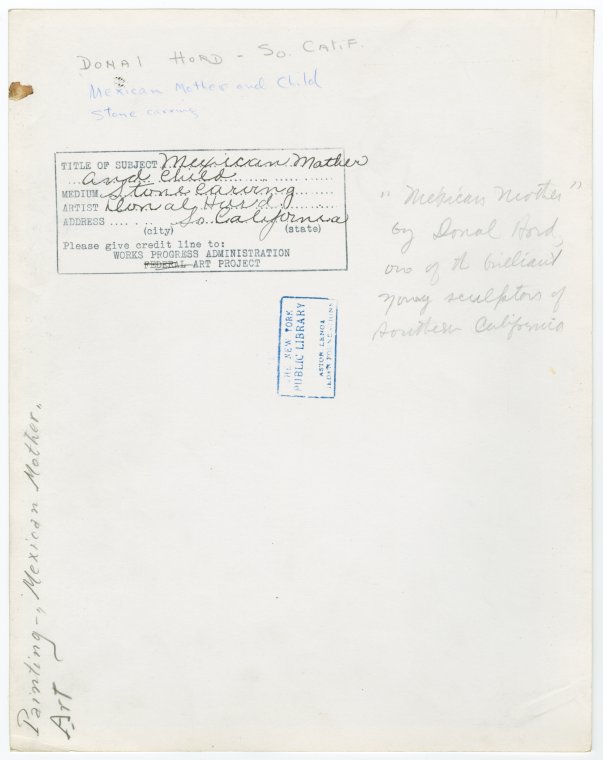 DONAL HORD - SO. CALIF.
Mexican Mother and Child
Stone carving
TITLE OF SUBJECT Mexican Mother
and Child
MEDIUM Stone Carving
ARTIST Donal Hord
ADDRESS So. California
(city) (state)
Please give credit line to:
WORKS PROGRESS ADMINISTRATION
FEDERAL ART PROJECT
"Mexican Mother"
by Donal Hord,
one of the brilliant
young sculptors of
southern California
THE NEW YORK
PUBLIC LIBRARY
ASTOR LENOX
TILDEN FOUNDATIONS
Painting-, Mexican Mother,
Art